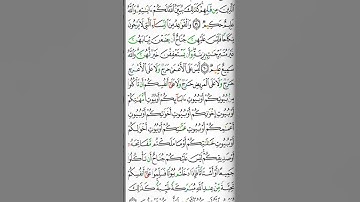 ٱلَّذِينَ مِن قَبْلِهِمْ كَذَٰلِكَ يُبَيِّنُ ٱللَّهُ لَكُمْ ءَايَٰتِهِۦ وَٱللَّهُ
عَلِيمٌ حَكِيمٌ وَٱلْقَوَٰعِدُ مِنَ ٱلنِّسَآءِ ٱلَّٰتِى لَا يَرْجُونَ
نِكَاحًا فَلَيْسَ عَلَيْهِنَّ جُنَاحٌ أَن يَضَعْنَ ثِيَابَهُنَّ
غَيْرَ مُتَبَرِّجَٰتٍۭ بِزِينَةٍ وَأَن يَسْتَعْفِفْنَ خَيْرٌ لَّهُنَّ وَٱللَّهُ
سَمِيعٌ عَلِيمٌ لَّيْسَ عَلَى ٱلْأَعْمَىٰ حَرَجٌ وَلَا عَلَى ٱلْأَعْرَجِ
حَرَجٌ وَلَا عَلَى ٱلْمَرِيضِ حَرَجٌ وَلَا عَلَىٰٓ أَنفُسِكُمْ أَن تَأْكُلُوا۟
مِنۢ بُيُوتِكُمْ أَوْ بُيُوتِ ءَابَآئِكُمْ أَوْ بُيُوتِ أُمَّهَٰتِكُمْ
أَوْ بُيُوتِ إِخْوَٰنِكُمْ أَوْ بُيُوتِ أَخَوَٰتِكُمْ أَوْ
بُيُوتِ أَعْمَٰمِكُمْ أَوْ بُيُوتِ عَمَّٰتِكُمْ أَوْ بُيُوتِ أَخْوَٰلِكُمْ
أَوْ بُيُوتِ خَٰلَٰتِكُمْ أَوْ مَا مَلَكْتُم مَّفَاتِحَهُۥٓ
أَوْ صَدِيقِكُمْ لَيْسَ عَلَيْكُمْ جُنَاحٌ أَن تَأْكُلُوا۟
جَمِيعًا أَوْ أَشْتَاتًا فَإِذَا دَخَلْتُم بُيُوتًا فَسَلِّمُوا۟ عَلَىٰٓ أَنفُسِكُمْ
تَحِيَّةً مِّنْ عِندِ ٱللَّهِ مُبَٰرَكَةً طَيِّبَةً كَذَٰلِكَ